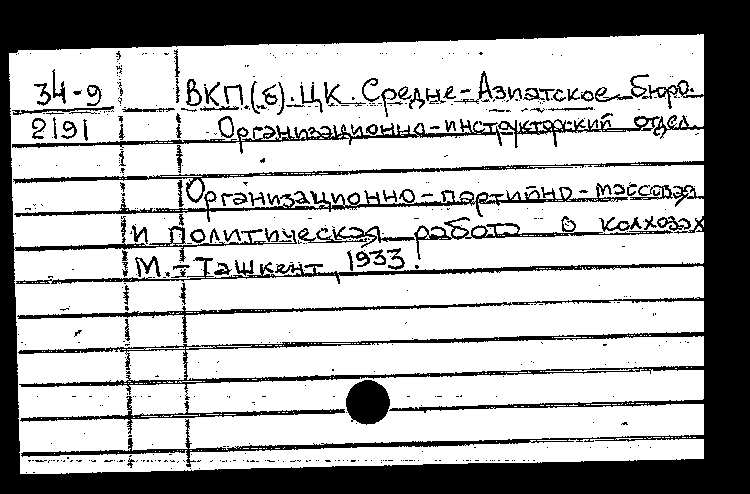 34-9 ВКП(б). ЦК. Средне-Азиатское Бюро.
2191 Организационно-инструкторский отдел.
Организационно-партийно-массовая
и политическая работа в колхозах
М.-Ташкент, 1933.